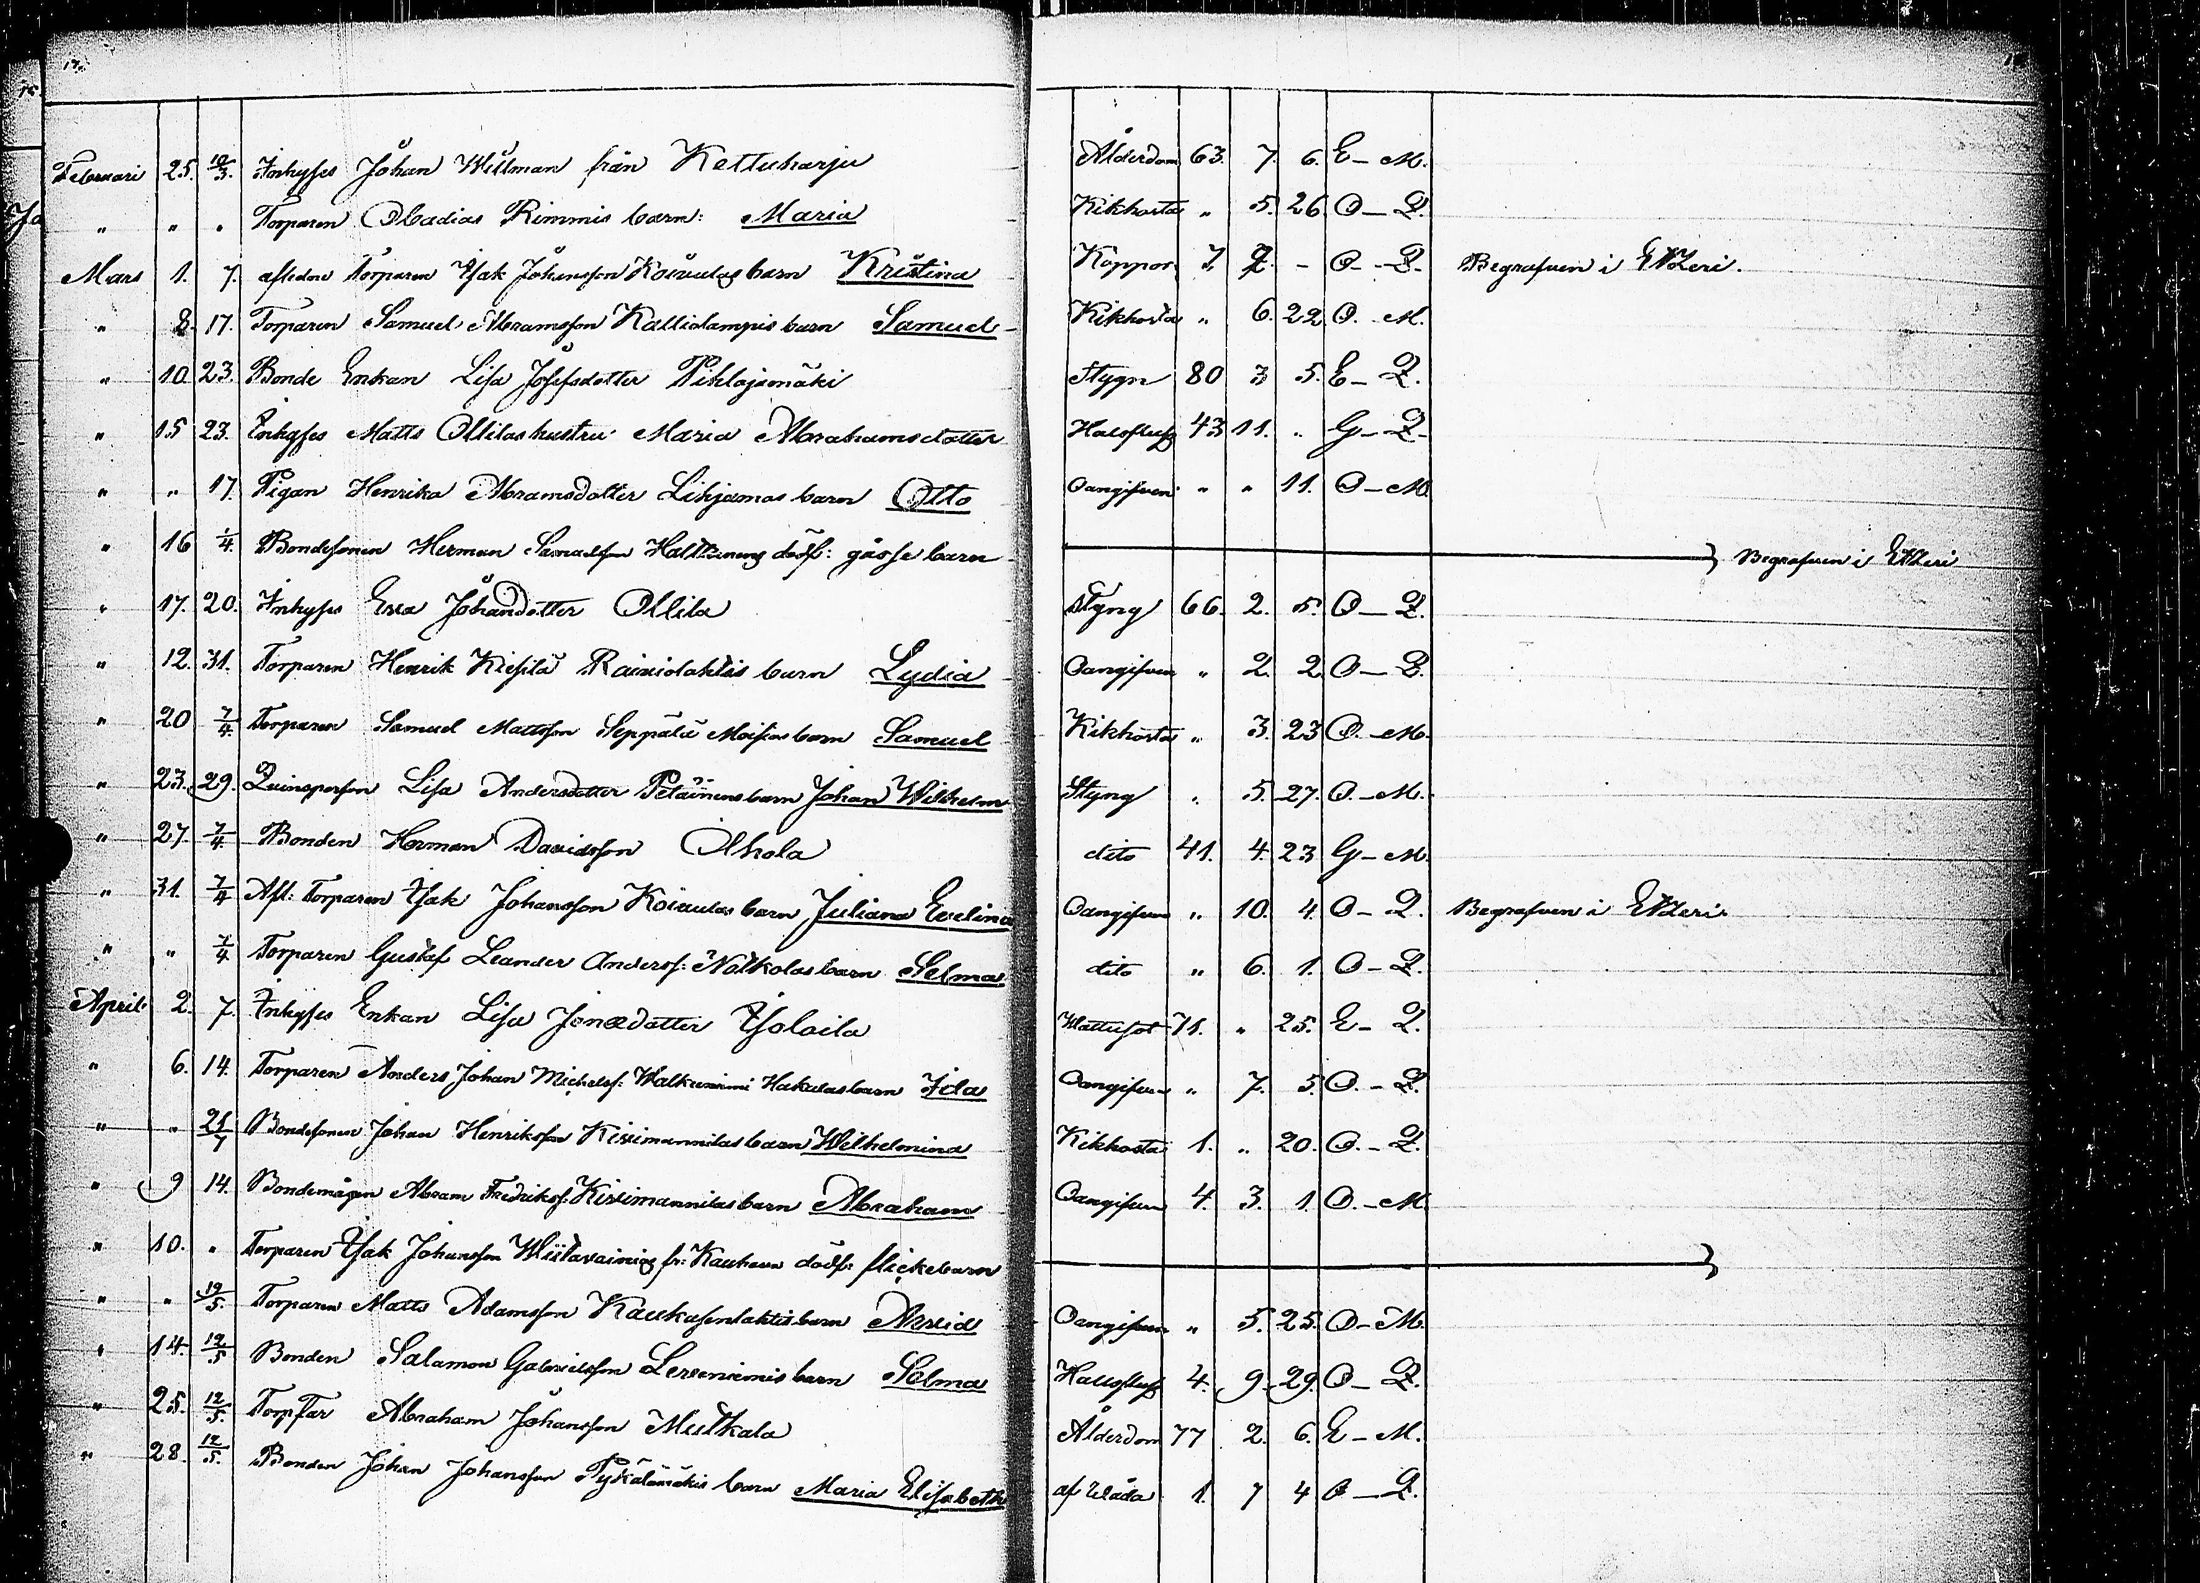 17.
Februari 25. 10/3. Inhyses Johan Willman från Kettuharju Ålderdom 63. 7. 6. E – M.
" " " Torparen Obadias Rimmis barn: Maria Kikhosta " 5. 26 O – Q.
Mars 1. 7. afledne torparen Isak Johansson Koivulas barn Kristina Koppor 7. – O – Q. Begrafven i Etseri.
" 8. 17. Torparen Samuel Abramsson Kalliolampis barn Samuel Kikhosta " 6. 22 O. – M.
" 10. 23. Bonde Enkan Lisa Josefsdotter Pihlajamäki Stygn 80 3 5. E – Q.
" 15 23. Inhyses Matts Ollilas hustru Maria Abrahamsdotter Halsfluss 43 11. " G – Q.
" " 17 Pigan Henrika Abramsdotter Lihjamas barn Otto Oangifven " " 11. O – M.
" 16 1/4. Bondesonen Herman Samuelsson Halttunens dödf: gosse barn Begrafven i Etseri
" 17. 20. Inhyses Eva Johansdotter Ollila Styng 66. 2. 5. O – Q.
" 12. 31. Torparen Henrik Kiesilä Rainiolahtis barn Lydia Oangifven " 2. 2 O – Q.
" 20 7/4. Torparen Samuel Mattsson Seppälä Moisios barn Samuel Kikhosta " 3. 23 O. – M.
" 23. 29. Qvinsperson Lisa Andersdotter Petäinens barn Johan Wilhelm Styng " 5. 27. O. – M.
" 27. 7/4 Bonden Herman Davidsson Alkola dito 41. 4. 23 G – M.
" 31. 7/4 Afl: Torparen Isak Johansson Koivulas barn Juliana Evelina Oangifven " 10. 4. O – Q. Begrafven i Etseri.
" " 7/4 Torparen Gustaf Leander Andersf: Notkolas barn Selma dito " 6. 1. O – Q.
April 2. 7. Inhyses Enkan Lisa Jonædotter Isolaila Wattusot 71. " 25. E – Q.
" 6. 14. Torparen Anders Johan Michelsf: Walkeeniemi Hakulas barn Ida Oangifven " 7. 5. O. – Q.
" " 21/7 Bondesonen Johan Henriksson Kivimannilas barn Wilhelmina Kikhosta 1. " 20. O. – Q.
" 9 14. Bondemågen Abram Fredriksf: Kivimannilas barn Abraham Oangifven 4. 3. 1. O. – M.
" 10. " Torparen Isak Johansson Wiitavainios fr: Kauhava dödf: flickebarn
" " 12/5. Torparen Matts Adamsson Kaukasenlahtis barn Arvid Oangifven " 5. 25. O – M.
" 14. 12/5 Bonden Salamon Gabrielsson Leveniemis barn Selma Halsfluss 4. 9. 29. O – Q.
" 25. 12/5. Torpfar Abraham Johansson Mutkala Ålderdom 77 2. 6. E – M.
" 28. 12/5. Bonden Johan Johansson Pykälämäkis barn Maria Elisabeth af Våda 1. 7 4 O – Q.